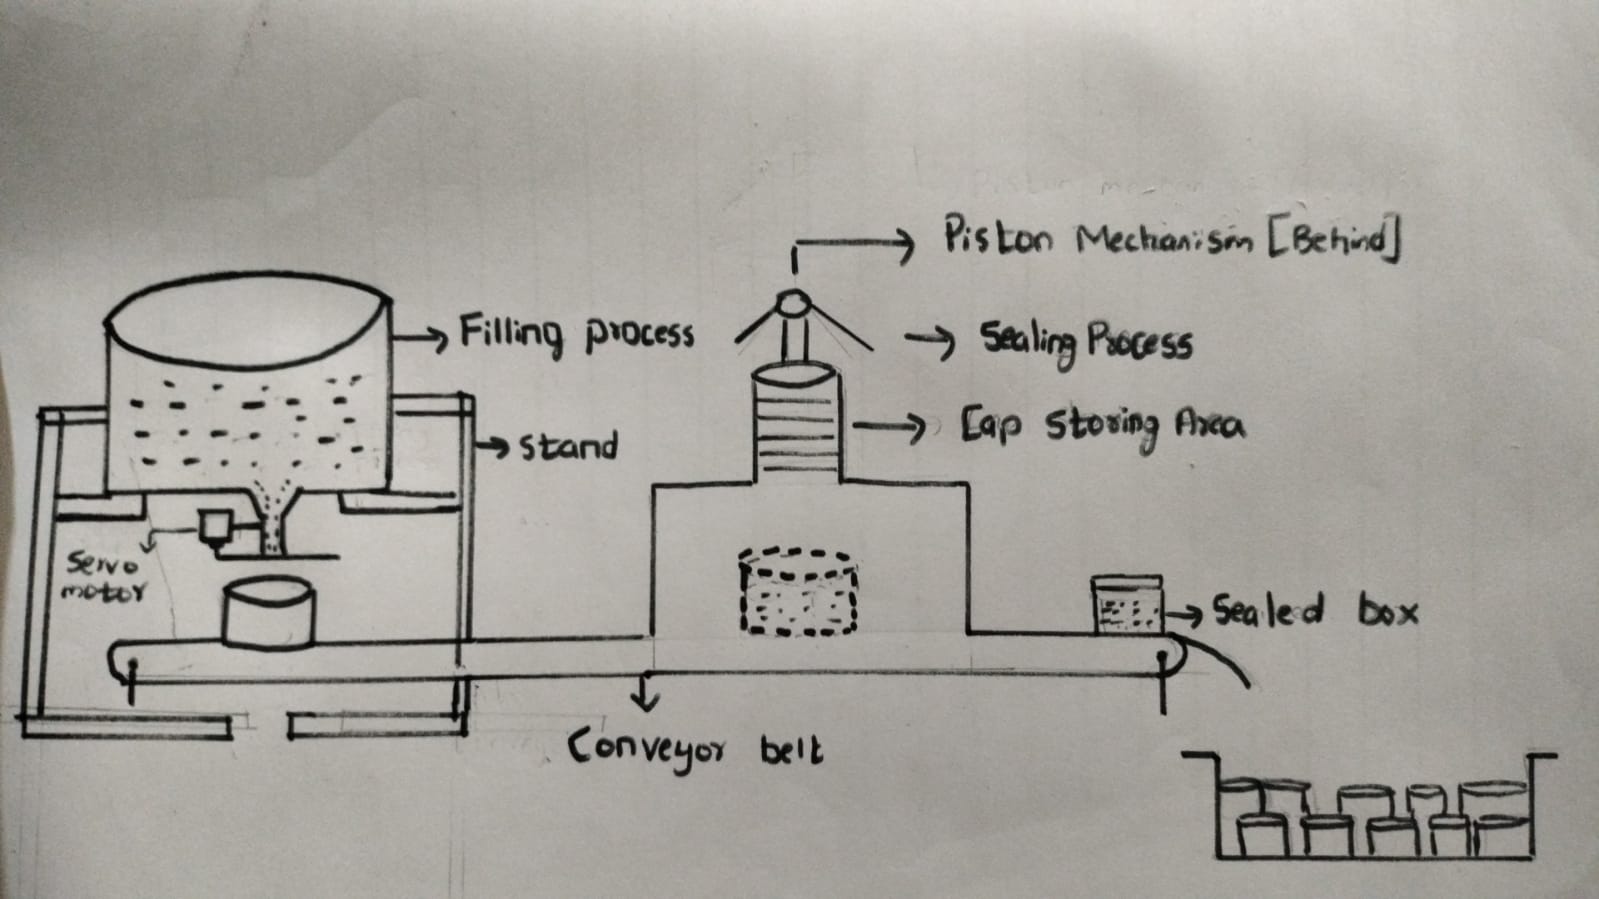 Piston Mechanism [Behind]
Filling process
Sealing Process
Cap Storing Area
Stand
Servo
motor
Sealed box
Conveyor belt